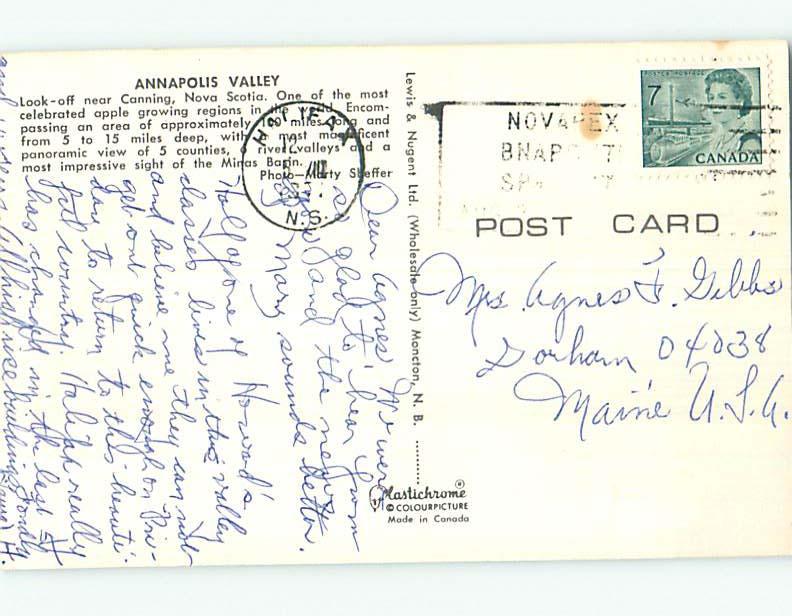 ANNAPOLIS VALLEY
Look-off near Canning, Nova Scotia. One of the most
celebrated apple growing regions in the world. Encom-
passing an area of approximately miles long and
from 5 to 15 miles deep, with a most magnificent
panoramic view of 5 counties, 6 river valleys and a
most impressive sight of the Minas Basin.
Photo—Marty Sheffer
HALIFAX
N.S.
NOVAPEX
BNAPS 7
POSTES POSTAGE
7
CANADA
POST CARD
Lewis & Nugent Ltd. (Wholesale only) Moncton, N. B.
Mrs. Agnes F. Gibbs
Gorham 04038
Maine U.S.A.
Dear Agnes We were
so glad to hear from
you and the news
of Mary sounds better.
Half of one of Howard's
classes lives in this valley
and believe me they can not
get out quick enough on Fri-
day to return to this beauti-
ful country. Halifax really
has changed in the last
high rise buildings
Plastichrome ®
© COLOURPICTURE
Made in Canada